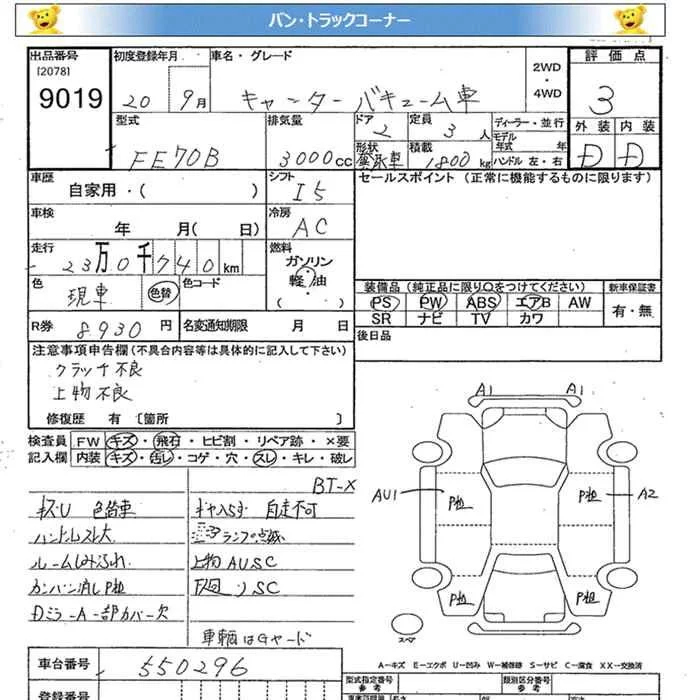 バン・トラックコーナー
出品番号
[2078]
9019
初度登録年月
20 9月
車名・グレード
キャンター バキューム車
2WD
・
4WD
評価点
3
外装 内装
D D
型式
FE70B
排気量
3000cc
ドア
2
定員
3人
形状
積載
1800kg
ディーラー・並行
モデル
年式 年
ハンドル 左・右
車歴
自家用・( )
シフト
I5
セールスポイント (正常に機能するものに限ります)
車検
年 月( 日)
冷房
AC
走行
23万0千740km
燃料
ガソリン
軽油
( )
色
現車 色替
色コード
装備品 (純正品に限り○をつけてください)
新車保証書
PS PW ABS エアB AW
SR ナビ TV カワ
有・無
R券
8930円
名変通知期限 月 日
後日品
注意事項申告欄(不具合内容等は具体的に記入して下さい)
クラッチ不良
上物不良
修復歴 有 〔箇所 〕
検査員
記入欄
FW キズ・飛石・ヒビ割・リペア跡・×要
内装 キズ・汚レ・コゲ・穴・スレ・キレ・破レ
BT-X
キズU 色替車
ハンドルスレ大
ルームしみ汚れ
カンバン消しP粗
Dミラ-A-部カバー欠
ギヤ入らず 自走不可
ランプ点緑
上物AUSC
下回りSC
車輌はGヤード
A1 A1
AU1 P粗 P粗 A2
P粗 P粗
スペア
A－キズ E－エクボ U－凹み W－補修跡 S－サビ C－腐食 XX－交換済
車台番号
550296
登録番号
型式指定番号
参考
類別区分番号
参考